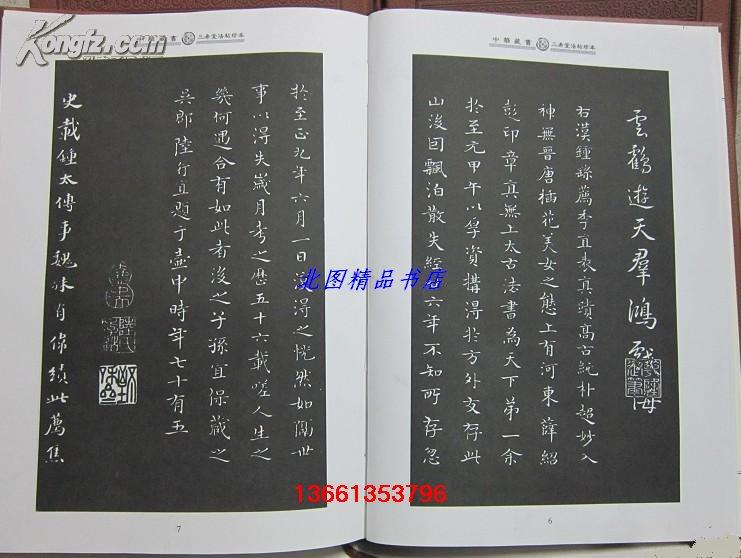 中華藏書 三希堂法帖珍本
雲鶴遊天群鴻戲海
右漢鍾繇薦季直表真蹟高古純朴超妙入
神無晉唐插花美女之態上有河東薛紹
彭印章真無上太古法書為天下第一余
於至元甲午以厚資購得於方外友存此
山後因飄泊散失經六年不知所存忽
6
中華藏書 三希堂法帖珍本
於至正九年六月一日復得之恍然如隔世
事以得失歲月考之歷五十六載嗟人生之
幾何遇合有如此者後之子孫宜保藏之
吳郡陸行直題于壺中時年七十有五
史載鍾太傅事魏殊有偉績此薦焦
7
Kongfz.com
北图精品书店
13661353796